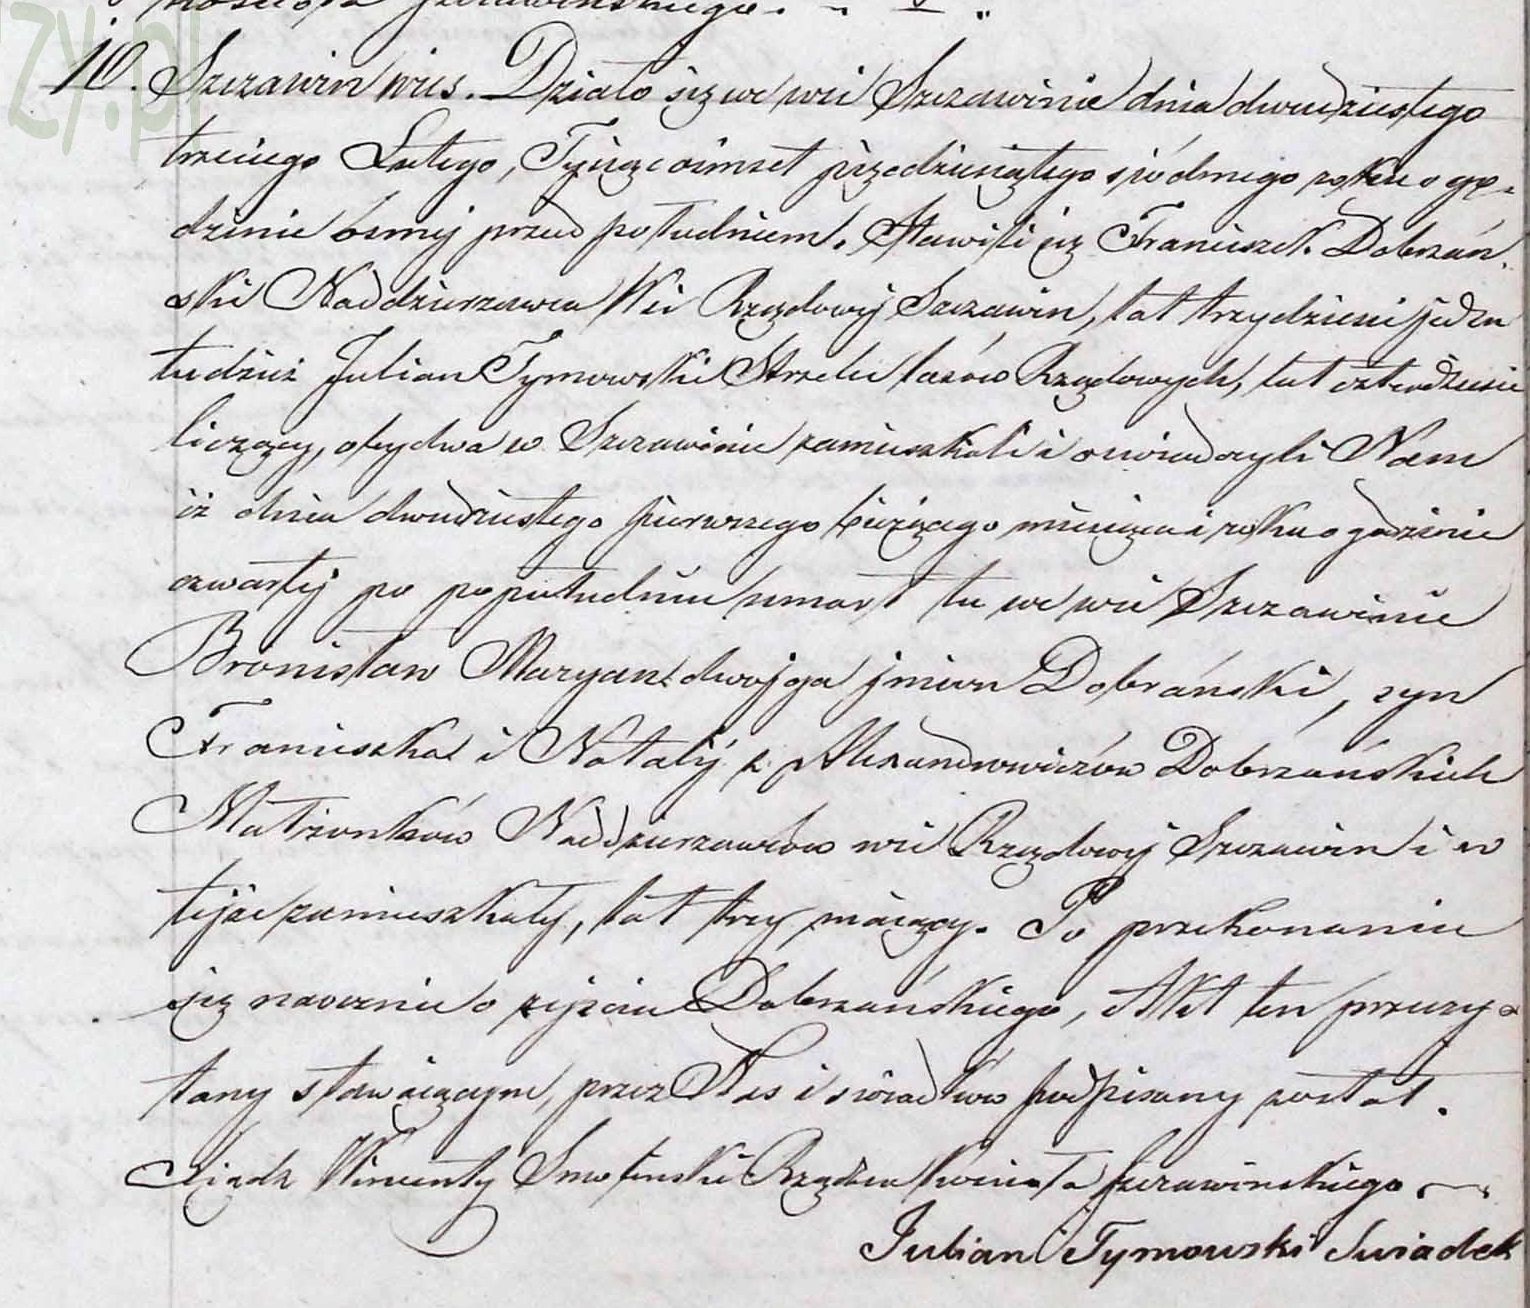 kościoła Szczawińskiego.
10. Szczawin wieś. Działo się we wsi Szczawinie dnia dwudziestego
trzeciego Lutego, Tysiąc ośmset pięćdziesiątego siódmego roku o go-
dzinie ósmej przed południem. Stawili się Franciszek Dobrzań-
ski Naddzierzawca Wsi Rządowej Szczawin, lat trzydzieści jeden
tudzież Julian Tymowski Strzelec lasów Rządowych, lat czterdzieści
liczący, obydwa w Szczawinie zamieszkali i oświadczyli Nam
iż dnia dwudziestego pierwszego bieżącego miesiąca i roku o godzinie
czwartej po popołudniu umarł tu we wsi Szczawinie
Bronisław Maryan dwojga imion Dobrański, syn
Franciszka i Natalij z Alexandrowiczów Dobrzańskich
Małżonków Naddzierzawców wsi Rządowej Szczawin i w
tejże zamieszkały, lat trzy mający. Po przekonaniu
się naocznie o zejściu Dobrzańskiego, Akt ten przeczy-
tany stawiającym, przez Nas i świadków podpisany został.
Xiądz Wincenty Smoleński Rządca kościoła Szczawińskiego
Julian Tymowski Swiadek